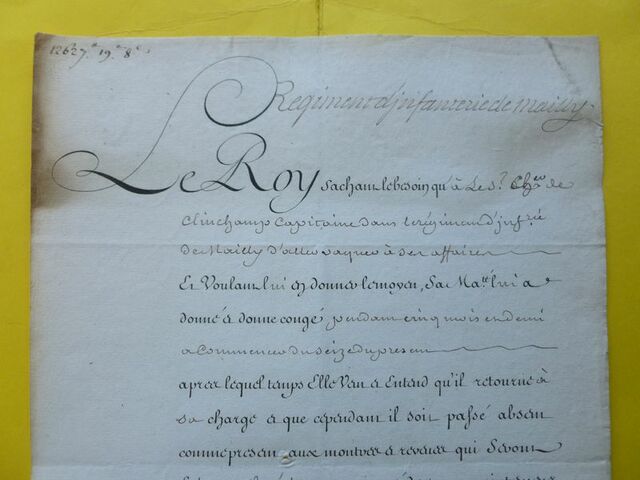 Regiment d'infanterie de Mailly
Le Roy sachant le besoin qu'a Le Sr. Cher. de
Clinchamp Capitaine dans le régiment d'infrie
de Mailly d'aller vaquer à ses affaires
Et Voulant lui en donner le moyen, Sa Maté lui a
donné & donne congé pendant cinq mois en demi
a Commencer du Seize du present
après lequel temps Elle Veut & Entend qu'il retourne à
sa charge & que cependant il soit passé absent
comme present aux montres & reveues qui Seront